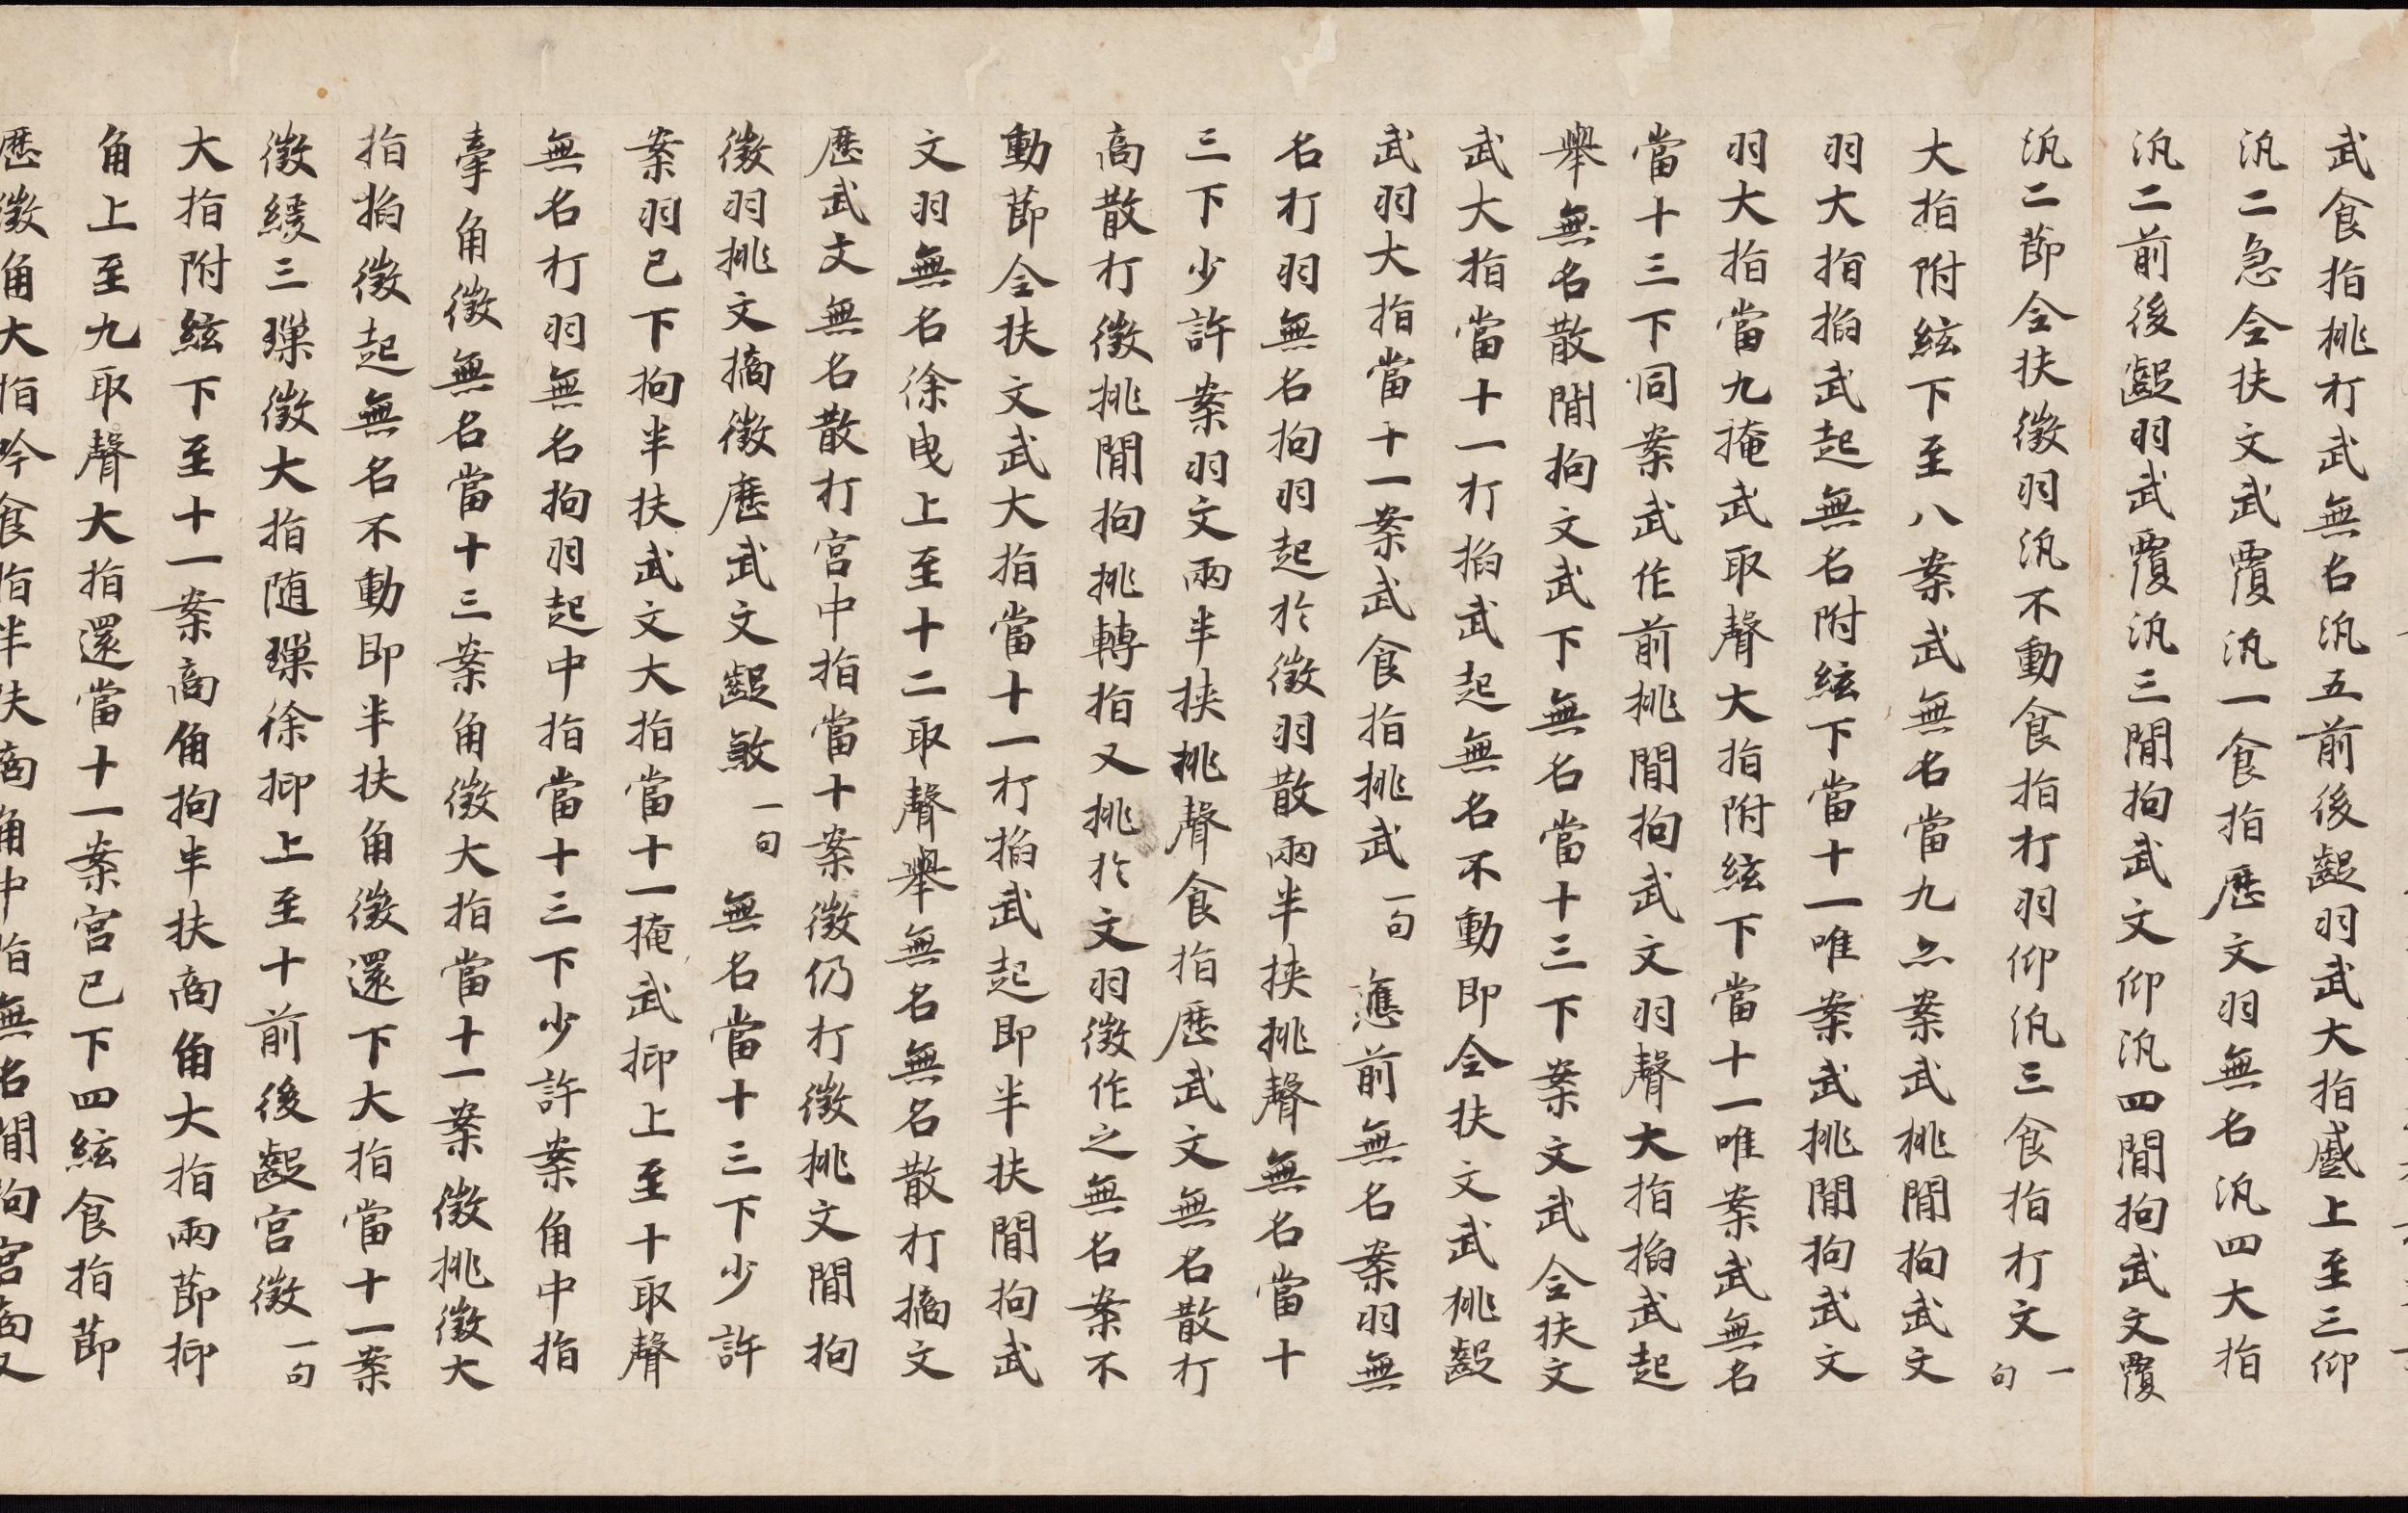 武食指挑打武無名汎五前後齪羽武大指蹙上至三仰
汎二急全扶文武覆汎一食指歷文羽無名汎四大指
汎二前後齪羽武覆汎三間拘武文仰汎四間拘武文覆
汎二節全扶徵羽汎不動食指打羽仰汎三食指打文一句
大指附絃下至八案武無名當九亦案武挑間拘武文
羽大指掐武起無名附絃下當十一唯案武挑間拘武文
羽大指當九掩武取聲大指附絃下當十一唯案武無名
當十三下同案武作前挑間拘武文羽聲大指掐武起
舉無名散間拘文武下無名當十三下案文武全扶文
武大指當十一打掐武起無名不動即全扶文武挑齪
武羽大指當十一案武食指挑武一句應前無名案羽無
名打羽無名拘羽起於徵羽散兩半挟挑聲無名當十
三下少許案羽文兩半挟挑聲食指歷武文無名散打
商散打徵挑間拘挑轉指又挑於文羽徵作之無名案不
動節全扶文武大指當十一打掐武起即半扶間拘武
文羽無名徐曳上至十二取聲舉無名無名散打擿文
歷武文無名散打宮中指當十案徵仍打徵挑文間拘
徵羽挑文擿徵歷武文齪煞一句無名當十三下少許
案羽已下拘半扶武文大指當十一掩武抑上至十取聲
無名打羽無名拘羽起中指當十三下少許案角中指
牽角徵無名當十三案角徵大指當十一案徵挑徵大
指掐徵起無名不動即半扶角徵還下大指當十一案
徵緩三璅徵大指随璅徐抑上至十前後齪宮徵一句
大指附絃下至十一案商角拘半扶商角大指兩節抑
角上至九取聲大指還當十一案宮已下四絃食指節
歷徵角大指吟食指半扶商角中指無名間拘宮商又